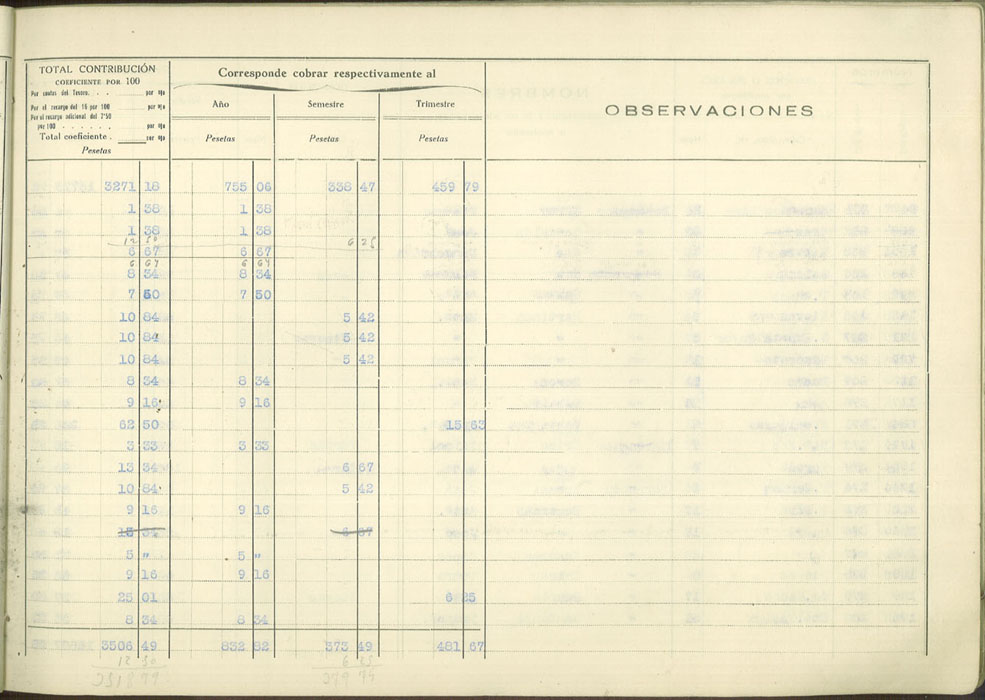 TOTAL CONTRIBUCIÓN
COEFICIENTE POR 100
Por cuotas del Tesoro. . . por 0/0
Por el recargo del 16 por 100 por 0/0
Por el recargo adicional del 7'50
por 100 . . . . . . por 0/0
Total coeficiente . por 0/0
Pesetas
Corresponde cobrar respectivamente al
Año Semestre Trimestre
Pesetas Pesetas Pesetas
OBSERVACIONES
3271 18 755 06 338 47 459 79
1 38 1 38
1 38 1 38
12 50 6 25
6 67 6 67
8 34 8 34
7 50 7 50
10 84 5 42
10 84 5 42
10 84 5 42
8 34 8 34
9 16 9 16
62 50 15 63
3 33 3 33
13 34 6 67
10 84 5 42
9 16 9 16
13 34 6 67
5 " 5 "
9 16 9 16
25 01 6 25
8 34 8 34
3506 49 832 82 373 49 481 67
12 50 6 25
3518 99 379 74